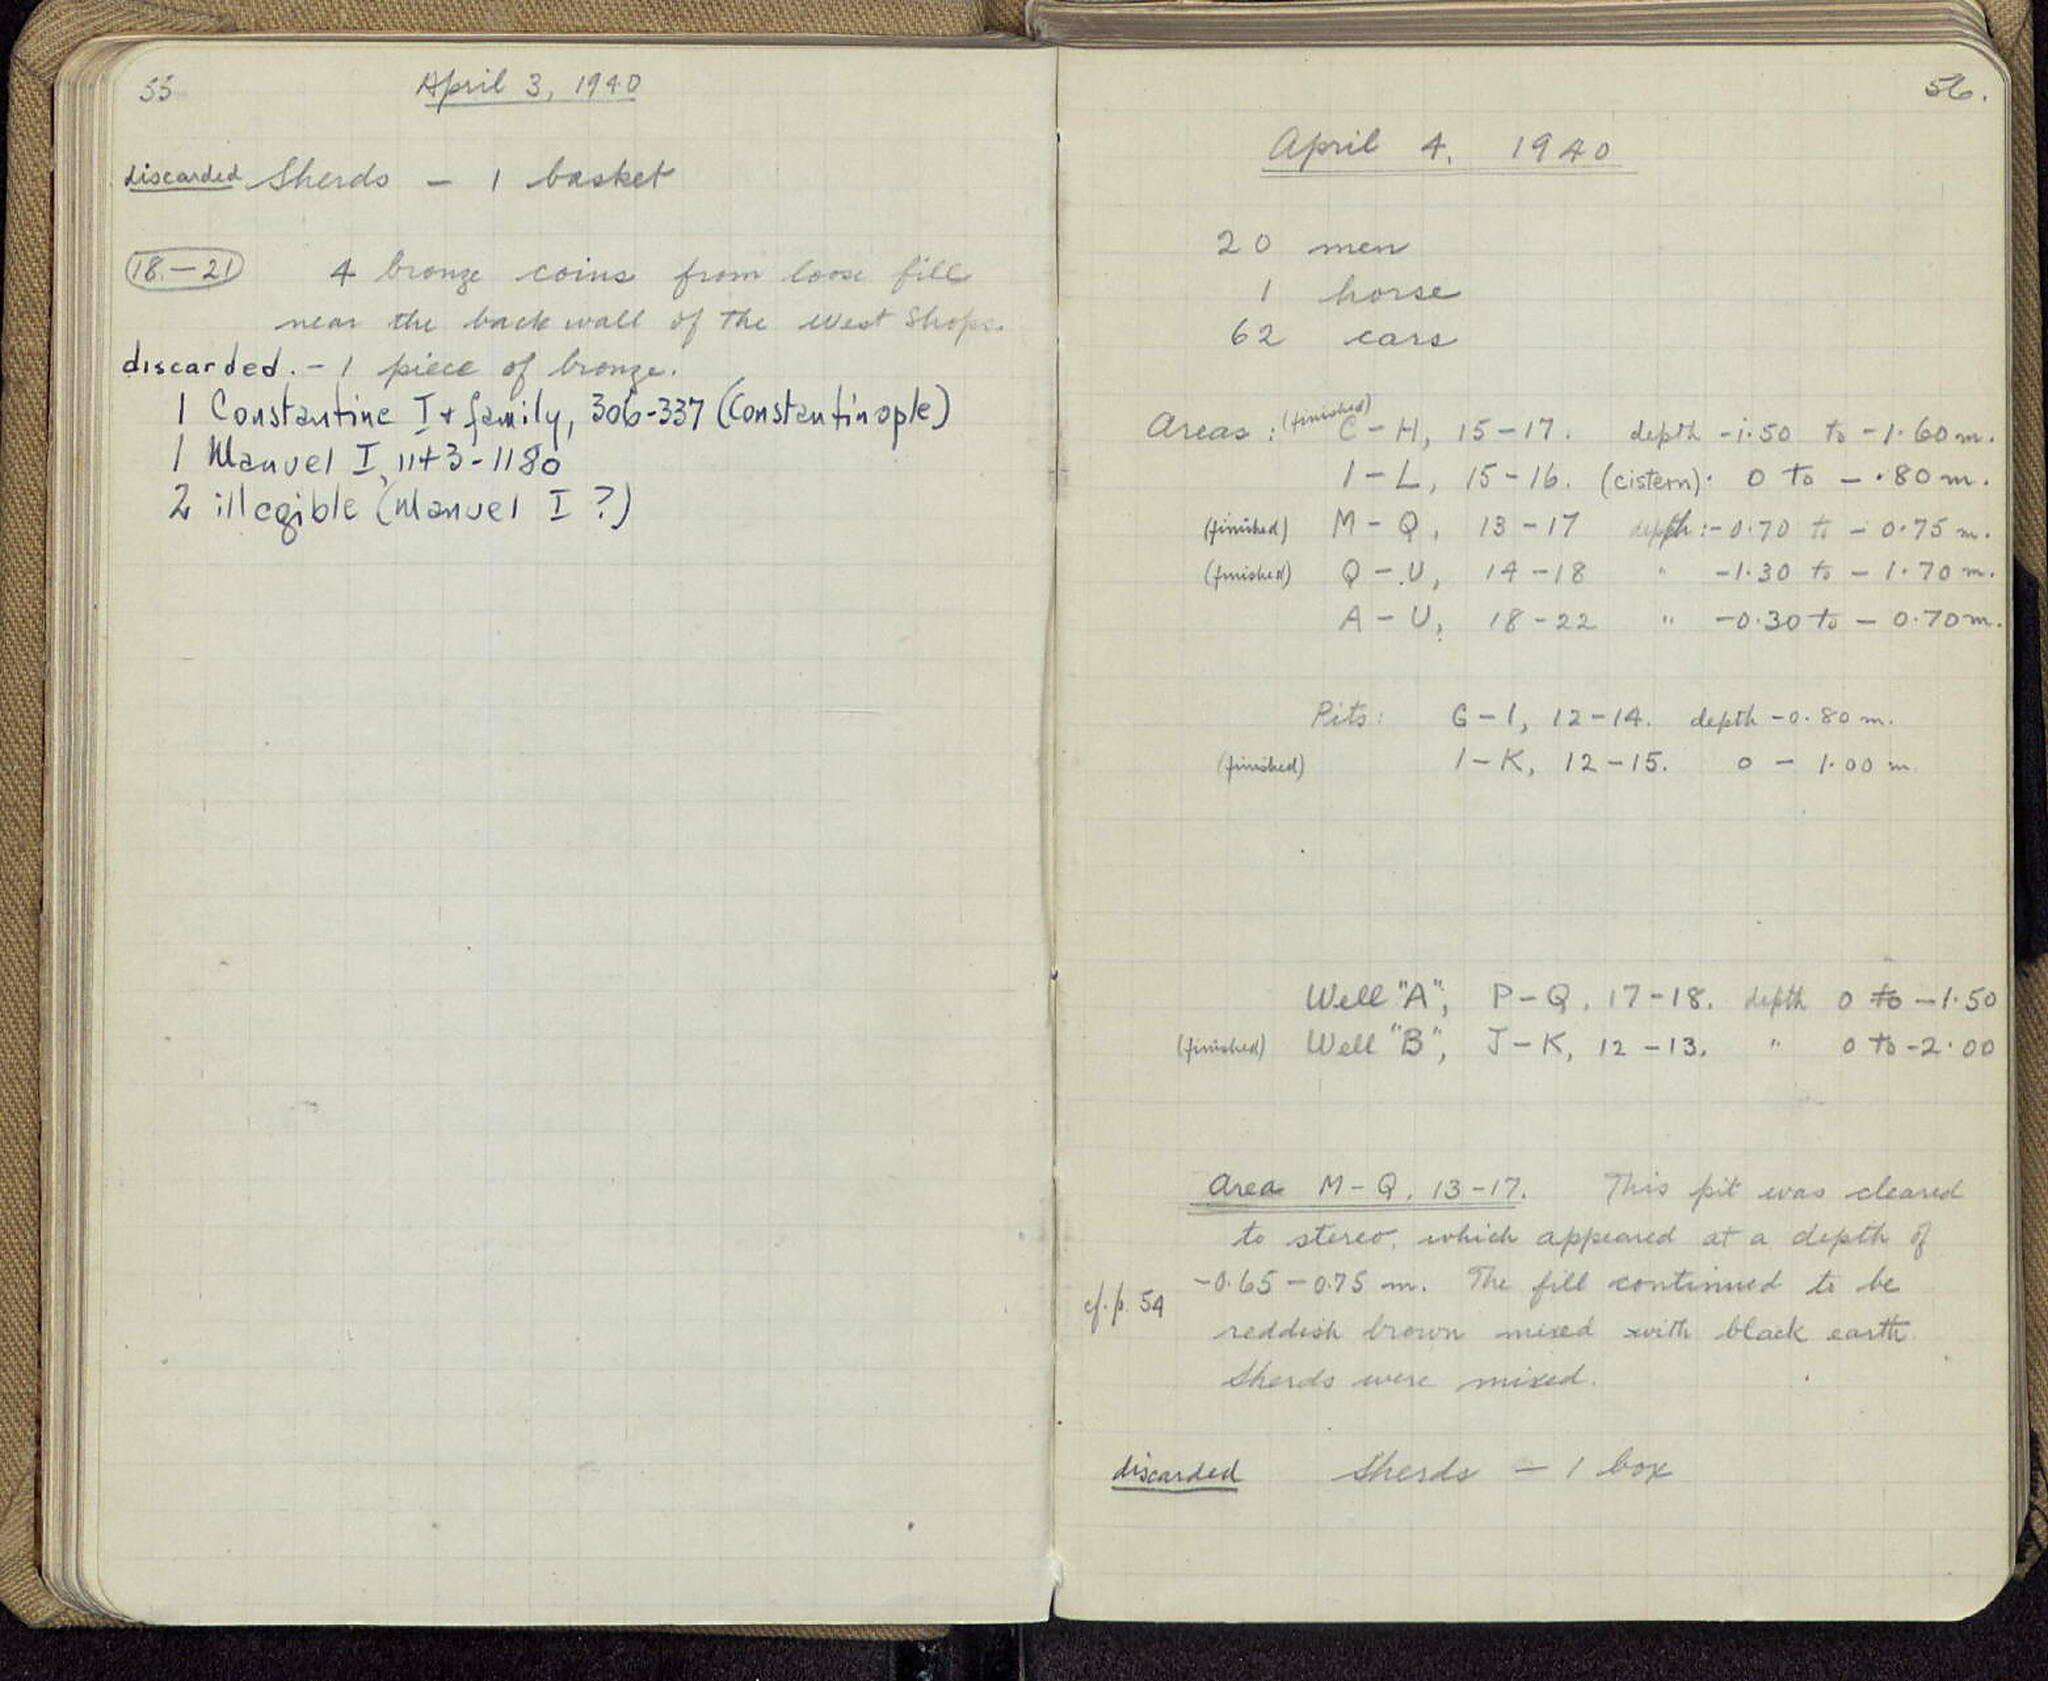 55
April 3, 1940
discarded Sherds - 1 basket
18.-21 4 bronze coins from loose fill
near the back wall of the West Shops.
discarded. - 1 piece of bronze.
1 Constantine I + family, 306-337 (Constantinople)
1 Manuel I, 1143-1180
2 illegible (Manuel I ?)
56.
April 4, 1940
20 men
1 horse
62 cars
Areas : (finished) C-H, 15-17. depth -1.50 to -1.60 m.
I-L, 15-16. (cistern): 0 to -.80 m.
(finished) M-Q, 13-17 depth: -0.70 to -0.75 m.
(finished) Q-U, 14-18 " -1.30 to -1.70 m.
A-U, 18-22 " -0.30 to -0.70 m.
Pits: G-I, 12-14. depth -0.80 m.
(finished) I-K, 12-15. 0 - 1.00 m
Well "A", P-Q, 17-18. depth 0 to -1.50
(finished) Well "B", J-K, 12-13. " 0 to -2.00
Area M-Q, 13-17. This pit was cleared
to stereo, which appeared at a depth of
-0.65 - 0.75 m. The fill continued to be
cf. p. 54
reddish brown mixed with black earth
Sherds were mixed.
discarded Sherds - 1 box